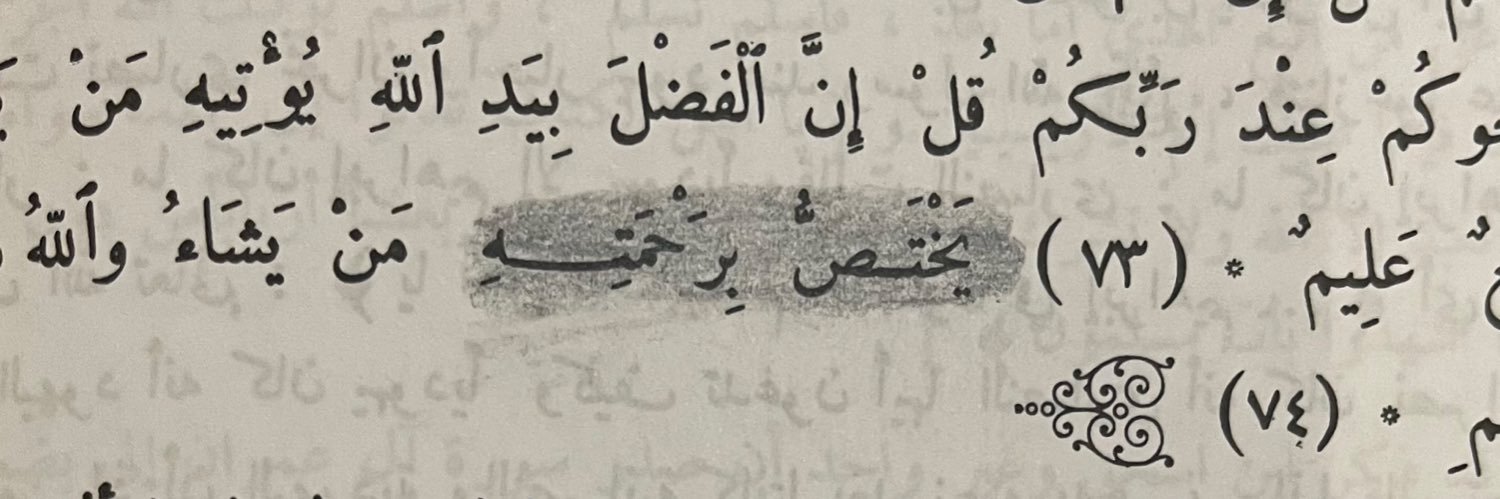 عِنْدَ رَبِّكُمْ قُلْ إِنَّ ٱلْفَضْلَ بِيَدِ ٱللّٰهِ يُؤْتِيهِ مَنْ
عَلِيمٌ * (٧٣) يَخْتَـصُّ بِرَحْمَتِـــهِ مَنْ يَشَاءُ وٱللّٰهُ
* (٧٤)